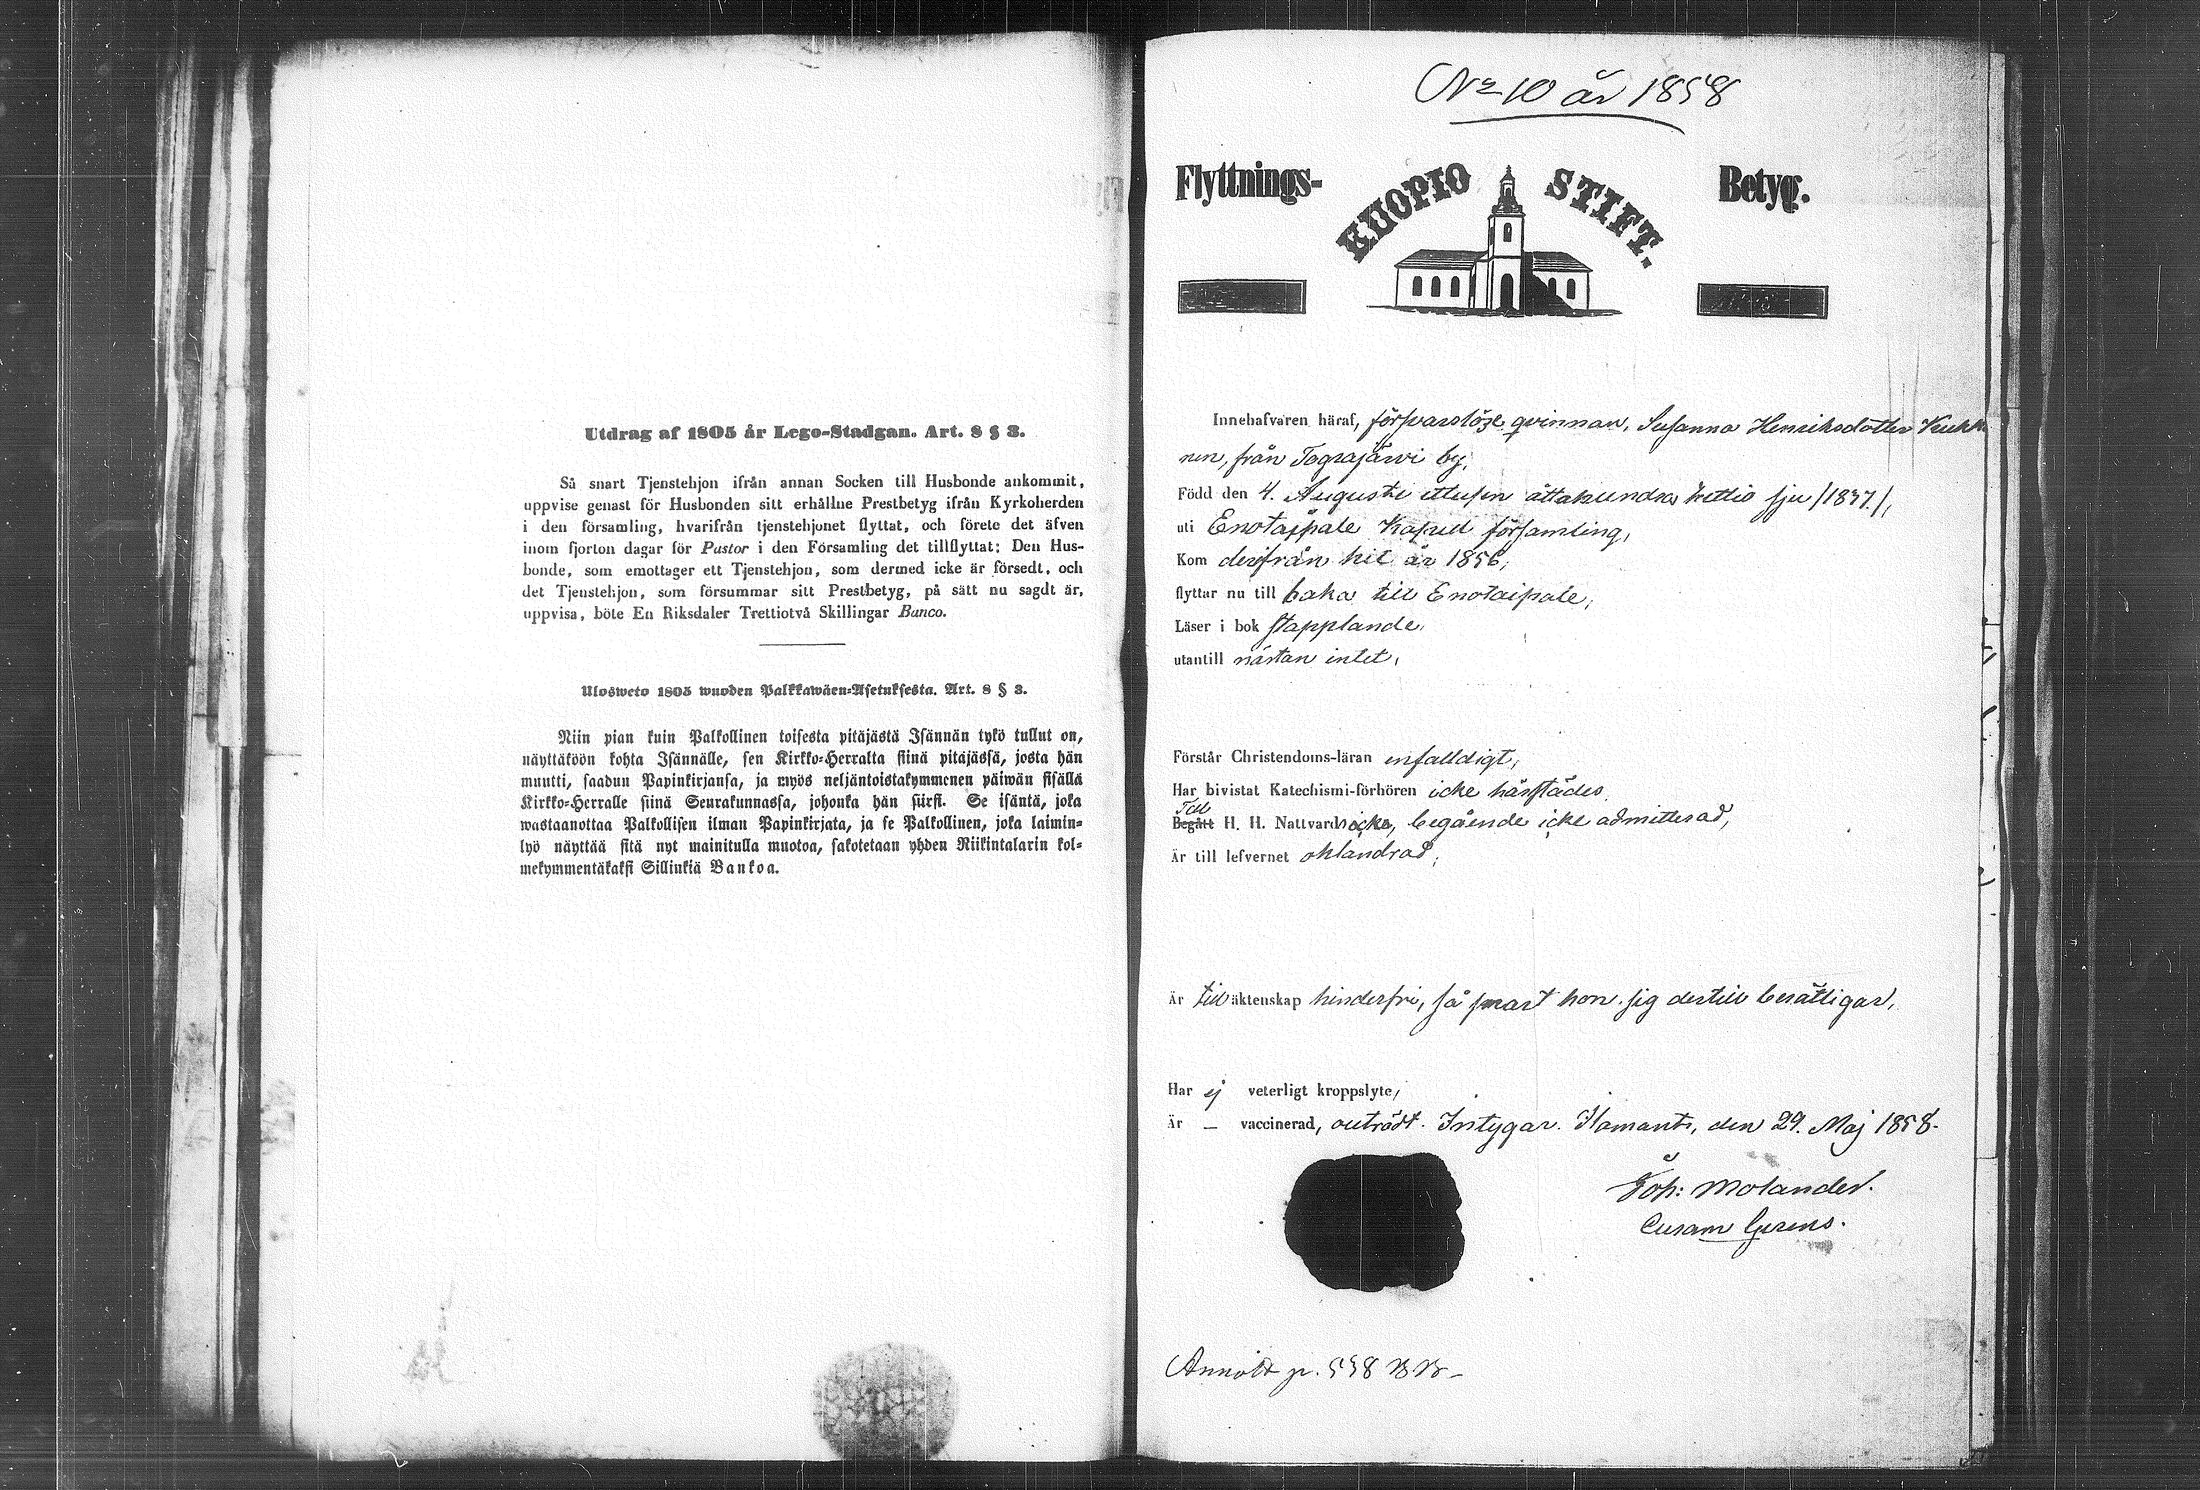 Utdrag af 1805 år Lego-Stadgan. Art. 8 § 3.
Så snart Tjenstehjon ifrån annan Socken till Husbonde ankommit,
uppvise genast för Husbonden sitt erhållne Prestbetyg ifrån Kyrkoherden
i den församling, hvarifrån tjenstehjonet flyttat, och förete det äfven
inom fjorton dagar för Pastor i den Församling det tillflyttat: Den Hus-
bonde, som emottager ett Tjenstehjon, som dermed icke är försedt, och
det Tjenstehjon, som försummar sitt Prestbetyg, på sätt nu sagdt är,
uppvisa, böte En Riksdaler Trettiotvå Skillingar Banco.
Ulosweto 1805 wuoden Palkkawäen-Asetuksesta. Art. 8 § 3.
Niin pian kuin Palkollinen toisesta pitäjästä Isännän tykö tullut on,
näyttäköön kohta Isännälle, sen Kirkko-Herralta siinä pitäjässä, josta hän
muutti, saadun Papinkirjansa, ja myös neljäntoistakymmenen päiwän sisällä
Kirkko-Herralle siinä Seurakunnassa, johonka hän siirsi. Se isäntä, joka
wastaanottaa Palkollisen ilman Papinkirjata, ja se Palkollinen, joka laimin-
lyö näyttää sitä nyt mainitulla muotoa, sakotetaan yhden Riikintalarin kol-
mekymmentäkaksi Sillinkiä Bankoa.
No 10 år 1858
Flyttnings- KUOPIO STIFT. Betyg.
Innehafvaren häraf, försvarslösa qvinnan, Susanna Henriksdotter Kukko
nen, från Tograjärvi by,
Född den 4. Augusti ettusen åttahundra trettio sju /1837./,
uti Enotaipale Kapell församling,
Kom derifrån hit år 1856,
flyttar nu till baka till Enotaipale,
Läser i bok stapplande,
utantill nästan intet,
Förstår Christendoms-läran enfalldigt,
Har bivistat Katechismi-förhören icke härstädes,
Till
Begått H. H. Nattvards icke, begående icke admitterad,
Är till lefvernet oklandrad,
Är till äktenskap hinderfri, så snart hon sig dertill berättigar,
Har ej veterligt kroppslyte,
Är – vaccinerad, outrödt. Intygar. Ilomants, den 29. Maj 1858.
Joh: Molander.
Curam Gerens.
Annott p. 558